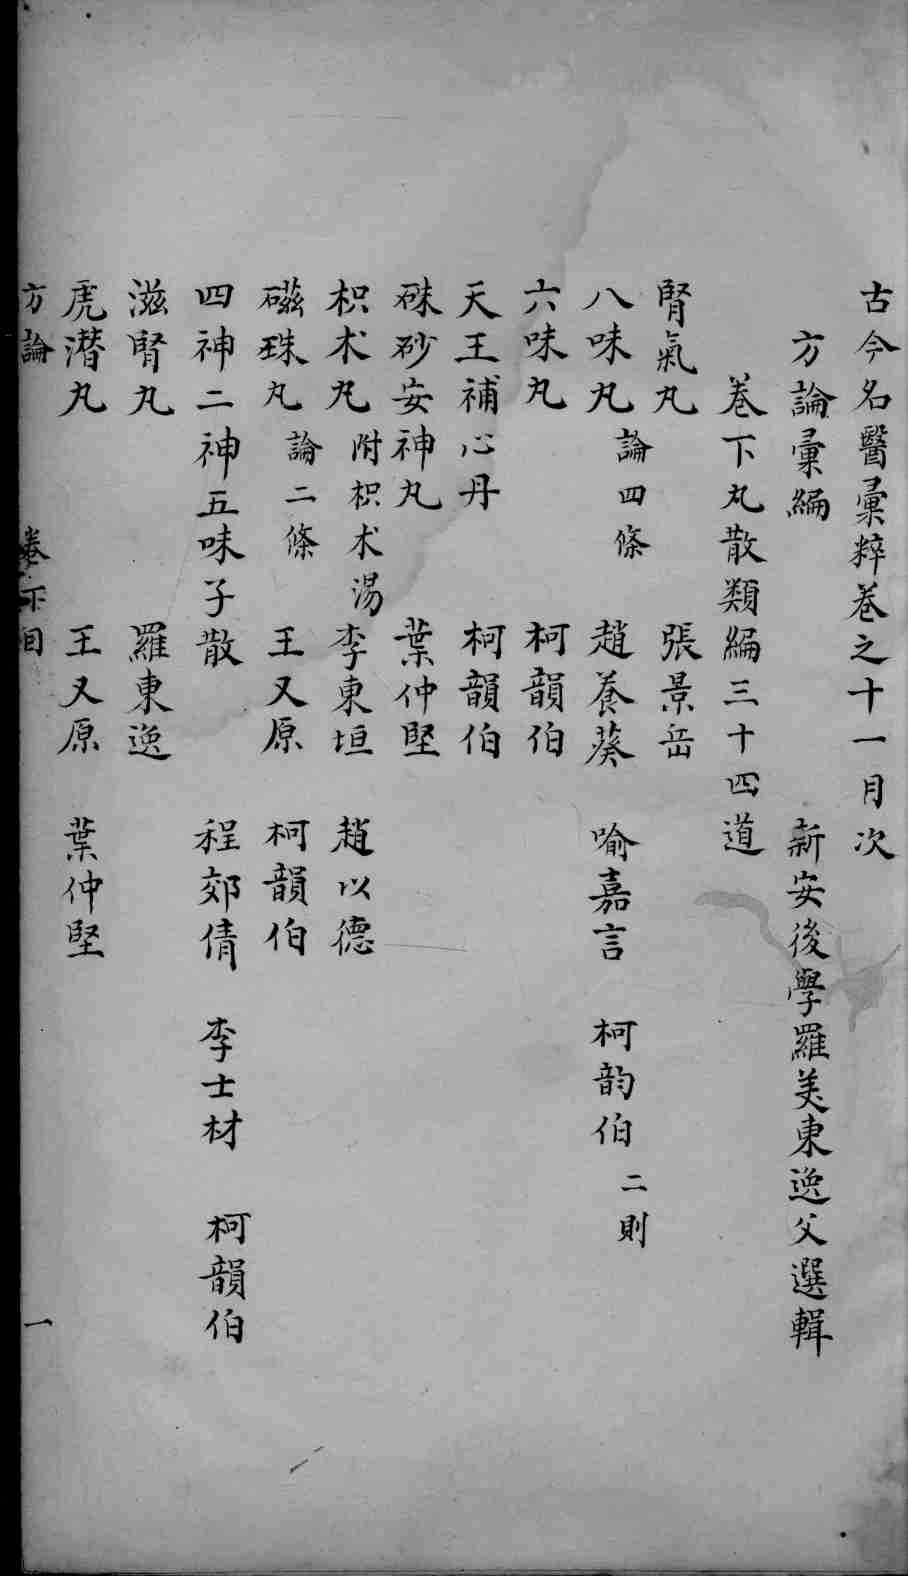 古今名醫彙粹卷之十一月次
方論彙編　新安後學羅美東逸父選輯
卷下丸散類編三十四道
腎氣丸　張景岳
八味丸　論四條　趙養葵　喻嘉言　柯韵伯　二則
六味丸　柯韻伯
天王補心丹　柯韻伯
硃砂安神丸　葉仲堅
枳术丸　附枳术湯　李東垣　趙以德
磁珠丸　論二條　王又原　柯韻伯
四神二神五味子散　程郊倩　李士材　柯韻伯
滋腎丸　羅東逸
虎潛丸　王又原　葉仲堅
方論　卷下目　一